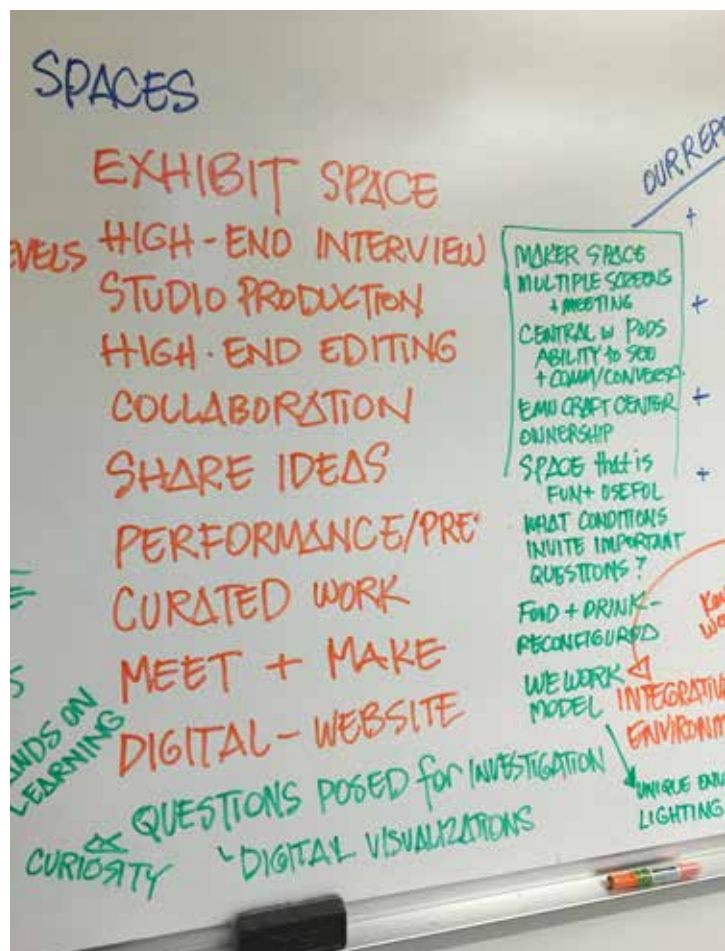 SPACES
EXHIBIT SPACE
HIGH-END INTERVIEW
STUDIO PRODUCTION
HIGH-END EDITING
COLLABORATION
SHARE IDEAS
PERFORMANCE/PRE
CURATED WORK
MEET + MAKE
DIGITAL - WEBSITE
QUESTIONS POSED for INVESTIGATION
DIGITAL VISUALIZATIONS
LEARNING
CURIOSITY
OUR
MAKER SPACE
MULTIPLE SCREENS
+ MEETING
CENTRAL W PODS
ABILITY to SEE
+ COMM/CONVERSA
EMU CRAFT CENTER
OWNERSHIP
SPACE that is
FUN + USEFUL
WHAT CONDITIONS
INVITE IMPORTANT
QUESTIONS?
FOOD + DRINK -
RECONFIGURED
WE WORK
MODEL
INTEGRATIV
ENVIRONM
UNIQUE
LIGHTING
+
+
+
+